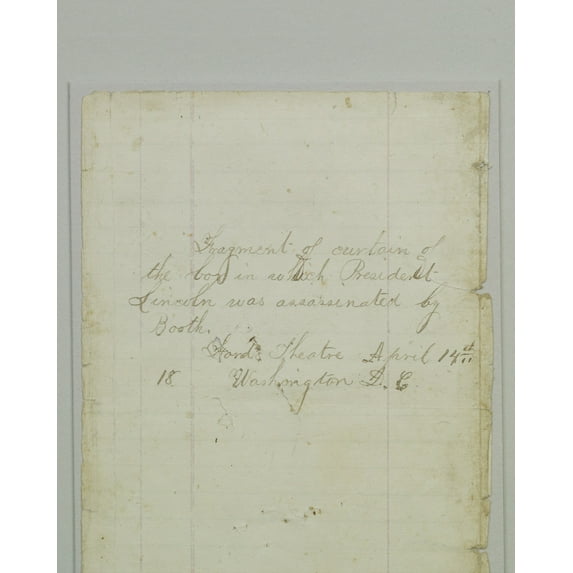 Fragment of curtain of
the box in which President
Lincoln was assassinated by
Booth.
Fords Theatre April 14th
18 Washington D. C